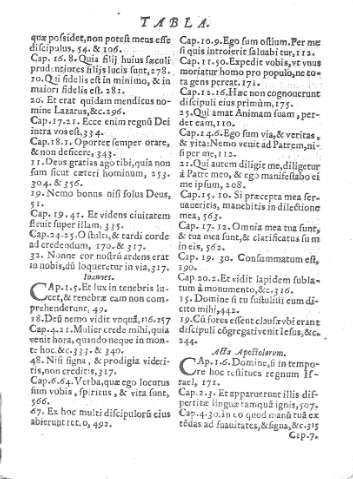 TABLA.
quæ possidet, non potest meus esse
discipulus, 54. & 106.
Cap. 16. 8. Quia filij huius sæculi
prudentiores filijs lucis sunt, 278.
10. Qui fidelis est in minimo, & in
maiori fidelis est. 281.
20. Et erat quidam mendicus no-
mine Lazarus, &c. 296.
Cap. 17. 21. Ecce enim regnũ Dei
intra vos est, 334.
Cap. 18. 1. Oportet semper orare,
& non deficere, 343.
11. Deus gratias ago tibi, quia non
sum sicut cæteri hominum, 253.
304. & 356.
19. Nemo bonus nisi solus Deus,
51.
Cap. 19. 41. Et videns ciuitatem
fleuit super illam, 335.
Cap. 24. 25. O stulti, & tardi corde
ad credendum, 170. & 317.
32. Nonne cor nostrũ ardens erat
in nobis, dũ loqueretur in via, 317.
Ioannes.
CAp. 1. 5. Et lux in tenebris lu-
cet, & tenebræ eam non com-
prehenderunt, 49.
18. Deũ nemo vidit vnquã, 116. 257
Cap. 4. 21. Mulier crede mihi, quia
venit hora, quando neque in mon-
te hoc. &c. 333. & 340.
48. Nisi signa, & prodigia videri-
tis, non creditis. 317
Cap. 6. 64. Verba, quæ ego locutus
sum vobis, spiritus, & vita sunt,
566.
67. Ex hoc multi discipulorũ eius
abierunt retro, 492.
Cap. 10. 9. Ego sum ostium. Per me
si quis introierit saluabitur, 112.
Cap. 11. 50. Expedit vobis, vt vnus
moriatur homo pro populo, ne to-
ta gens pereat. 171.
Cap. 12. 16. Hæc non cognouerunt
discipuli eius primùm, 175.
25. Qui amat Animam suam, per-
det eam, 110.
Cap. 14. 6. Ego sum via, & veritas,
& vita: Nemo venit ad Patrem, ni-
si per me, 112.
21. Qui autem diligit me, diligetur
à Patre meo, & ego manifestabo ei
me ipsum, 208.
Cap. 15. 10. Si præcepta mea ser-
uaueritis, manebitis in dilectione
mea, 563.
Cap. 17. 12. Omnia mea tua sunt,
& tua mea sunt, & clarificatus sum
in eis, 562.
Cap. 19. 30. Consummatum est,
190.
Cap. 20. 2. Et vidit lapidem subla-
tum à monumento, &c. 316.
15. Domine si tu sustulisti eum di-
cito mihi, 442.
19. Cũ fores essent clausæ vbi erant
discipuli cõgregati venit Iesus, &c.
244.
Acta Apostolorum.
CAp. 1. 6. Domine, si in tempo-
re hoc restitues regnum Is-
rael, 172.
Cap. 2. 3. Et apparuerunt illis dis-
pertitæ linguæ tamquã ignis, 507.
Cap. 4. 30. in eo quod manũ tuã ex-
tẽdas ad sanitates, & signa, &c. 315
Cap. 7.